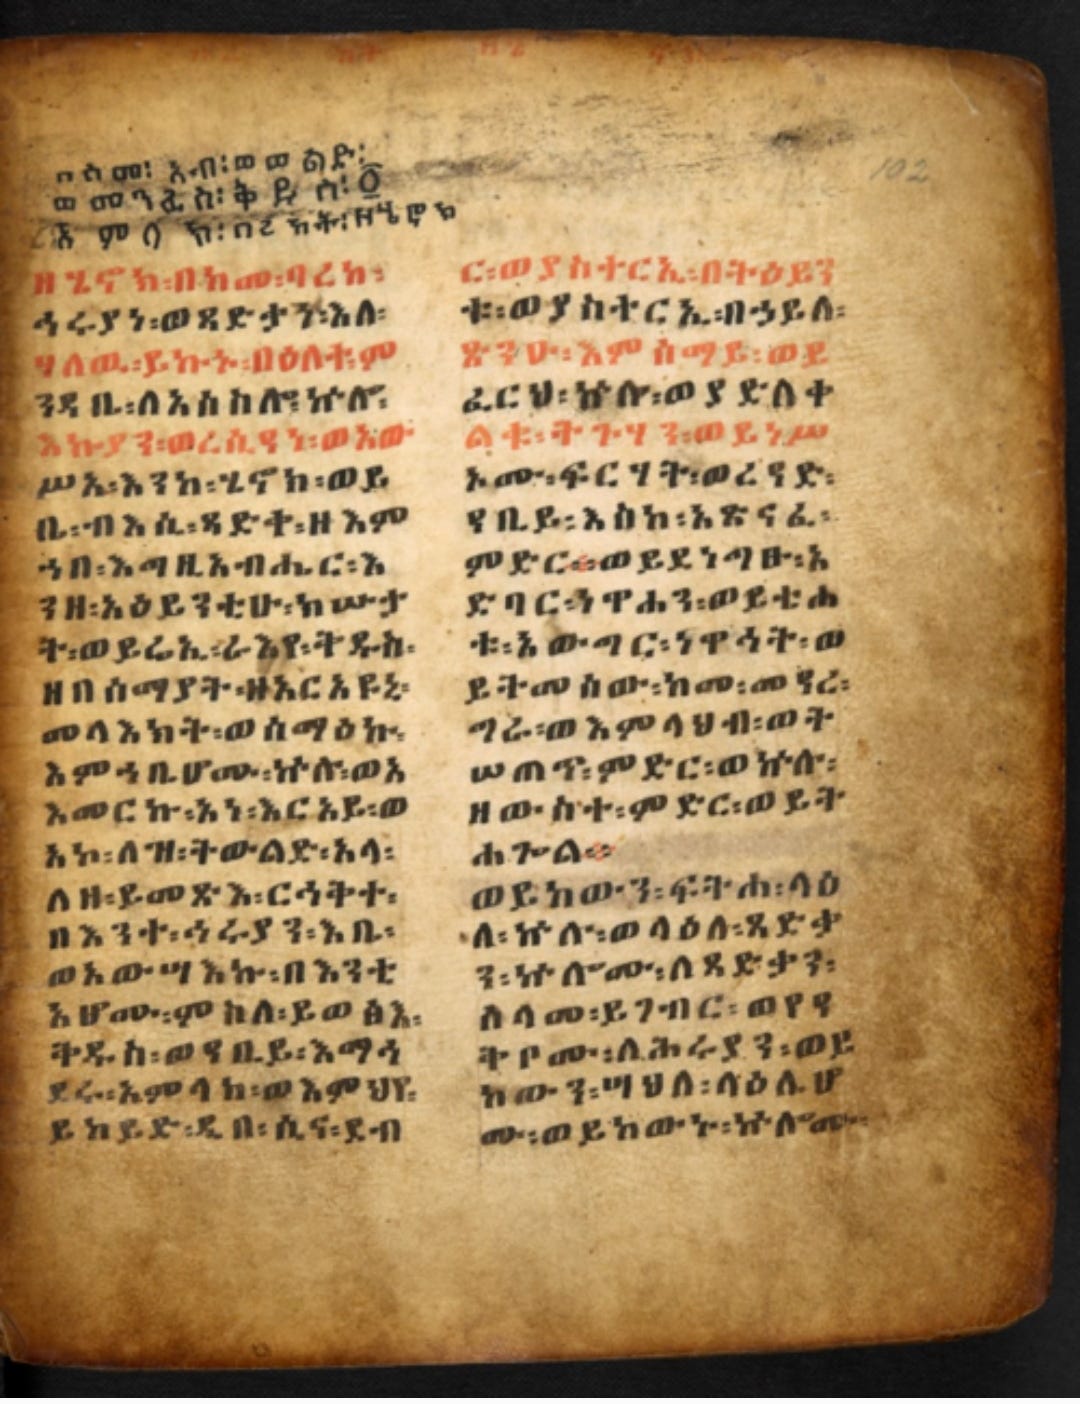 በስመ፡ አብ፡ ወወልድ፡
ወመንፈስ፡ ቅዱስ፡ ፩
አምላክ፡ በረከት፡ ዘሄኖክ
ዘሄኖክ፡ በከመ፡ ባረከ፡
ኅሩያነ፡ ወጻድታን፡ እለ፡
ሃለዉ፡ ይኩኑ፡ በዕለት፡ ም
ንዳቤ፡ ለአስስሎ፡ ኵሎ፡
እኩያን፡ ወረሲዓነ፡ ወአው
ሥአ፡ እንከ፡ ሄኖክ፡ ወይ
ቤ፡ ብእሲ፡ ጻድት፡ ዘእም
ኀበ፡ እግዚአብሔር፡ እ
ንዘ፡ አዕይንቲሁ፡ ክሡታ
ት፡ ወይሬኢ፡ ራእየ፡ ትዱስ፡
ዘበሰማያት፡ ዘአርአዩኒ፡
መላእክት፡ ወሰማዕኩ፡
እምኀቤሆሙ፡ ኵሎ፡ ወአ
እመርኩ፡ አነ፡ እርአይ፡ ወ
አኮ፡ ለዝ፡ ትውልድ፡ አላ፡
ለዘ፡ ይመጽእ፡ ርኅቅት፡
በእንተ፡ ኅሩያን፡ እቤ፡
ወአውሣእኩ፡ በእንቲ
አሆሙ፡ ምስለ፡ ይወፅእ፡
ትዱስ፡ ወዓቢይ፡ እማኅ
ደሩ፡ አምላከ፡ ወእምህየ፡
ይከይድ፡ ዲበ፡ ሲና፡ ደብ
ር፡ ወያስተርኢ፡ በትዕይን
ቱ፡ ወያስተርኢ፡ በኃይለ፡
ጽንዑ፡ እምሰማይ፡ ወይ
ፈርህ፡ ኵሉ፡ ወያድለቀ
ልቁ፡ ትጉሃን፡ ወይነሥ
ኦሙ፡ ፍርሃት፡ ወረዓድ፡
ዓቢይ፡ እስከ፡ አጽናፈ፡
ምድር። ወይደነግፁ፡ አ
ድባር፡ ነዋኃን፡ ወይቲሐ
ቱ፡ አውግር፡ ነዋኅት፡ ወ
ይትመሰው፡ ከመ፡ መዓረ፡
ግራ፡ ወእምላህብ፡ ወት
ሠጠጥ፡ ምድር፡ ወኵሉ፡
ዘውስተ፡ ምድር፡ ወይት
ሐጐል።
ወይከውን፡ ፍትሐ፡ ላዕ
ለ፡ ኵሉ፡ ወላዕለ፡ ጻድታ
ን፡ ኵሎሙ፡ ለጻድታን፡
ሰላመ፡ ይገብር፡ ወየዓ
ትቦሙ፡ ለኅሩያን፡ ወይ
ከውን፡ ሣህለ፡ ላዕሌሆ
ሙ፡ ወይከውኑ፡ ኵሎሙ፡
102